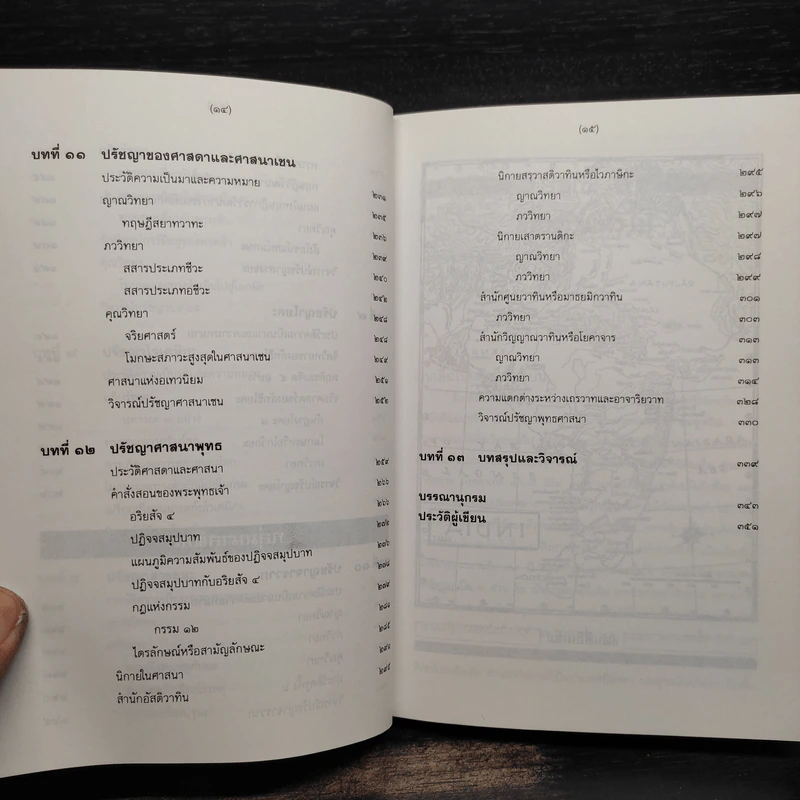 (๑๔)
บทที่ ๑๑ ปรัชญาของศาสดาและศาสนาเชน
ประวัติความเป็นมาและความหมาย ๒๓๑
ญาณวิทยา ๒๓๕
ทฤษฎีสยาทวาทะ ๒๓๖
ภววิทยา ๒๓๙
สสารประเภทชีวะ ๒๔๐
สสารประเภทอชีวะ ๒๔๒
คุณวิทยา ๒๔๘
จริยศาสตร์ ๒๔๘
โมกษะสภาวะสูงสุดในศาสนาเชน ๒๔๙
ศาสนาแห่งอเทวนิยม ๒๕๑
วิจารณ์ปรัชญาศาสนาเชน ๒๕๒
บทที่ ๑๒ ปรัชญาศาสนาพุทธ
ประวัติศาสดาและศาสนา ๒๕๙
คำสั่งสอนของพระพุทธเจ้า ๒๖๖
อริยสัจ ๔ ๒๖๖
ปฏิจจสมุปบาท ๒๗๒
แผนภูมิความสัมพันธ์ของปฏิจจสมุปบาท ๒๗๖
ปฏิจจสมุปบาทกับอริยสัจ ๔ ๒๗๘
กฎแห่งกรรม ๒๗๙
กรรม ๑๒ ๒๘๑
ไตรลักษณ์หรือสามัญลักษณะ ๒๘๕
นิกายในศาสนา ๒๙๐
สำนักอัสติวาทิน ๒๙๕
(๑๕)
นิกายสรฺวาสติวาทินหรือไวภาษิกะ ๒๙๕
ญาณวิทยา ๒๙๖
ภววิทยา ๒๙๗
นิกายเสาตรานติกะ ๒๙๗
ญาณวิทยา ๒๙๘
ภววิทยา ๒๙๙
สำนักศูนยวาทินหรือมาธยมิกวาทิน ๓๐๑
ภววิทยา ๓๐๓
สำนักวิญญาณวาทินหรือโยคาจาร ๓๑๓
ญาณวิทยา ๓๑๓
ภววิทยา ๓๑๔
ความแตกต่างระหว่างเถรวาทและอาจาริยวาท ๓๒๘
วิจารณ์ปรัชญาพุทธศาสนา ๓๓๐
บทที่ ๑๓ บทสรุปและวิจารณ์ ๓๓๙
บรรณานุกรม ๓๔๓
ประวัติผู้เขียน ๓๕๑